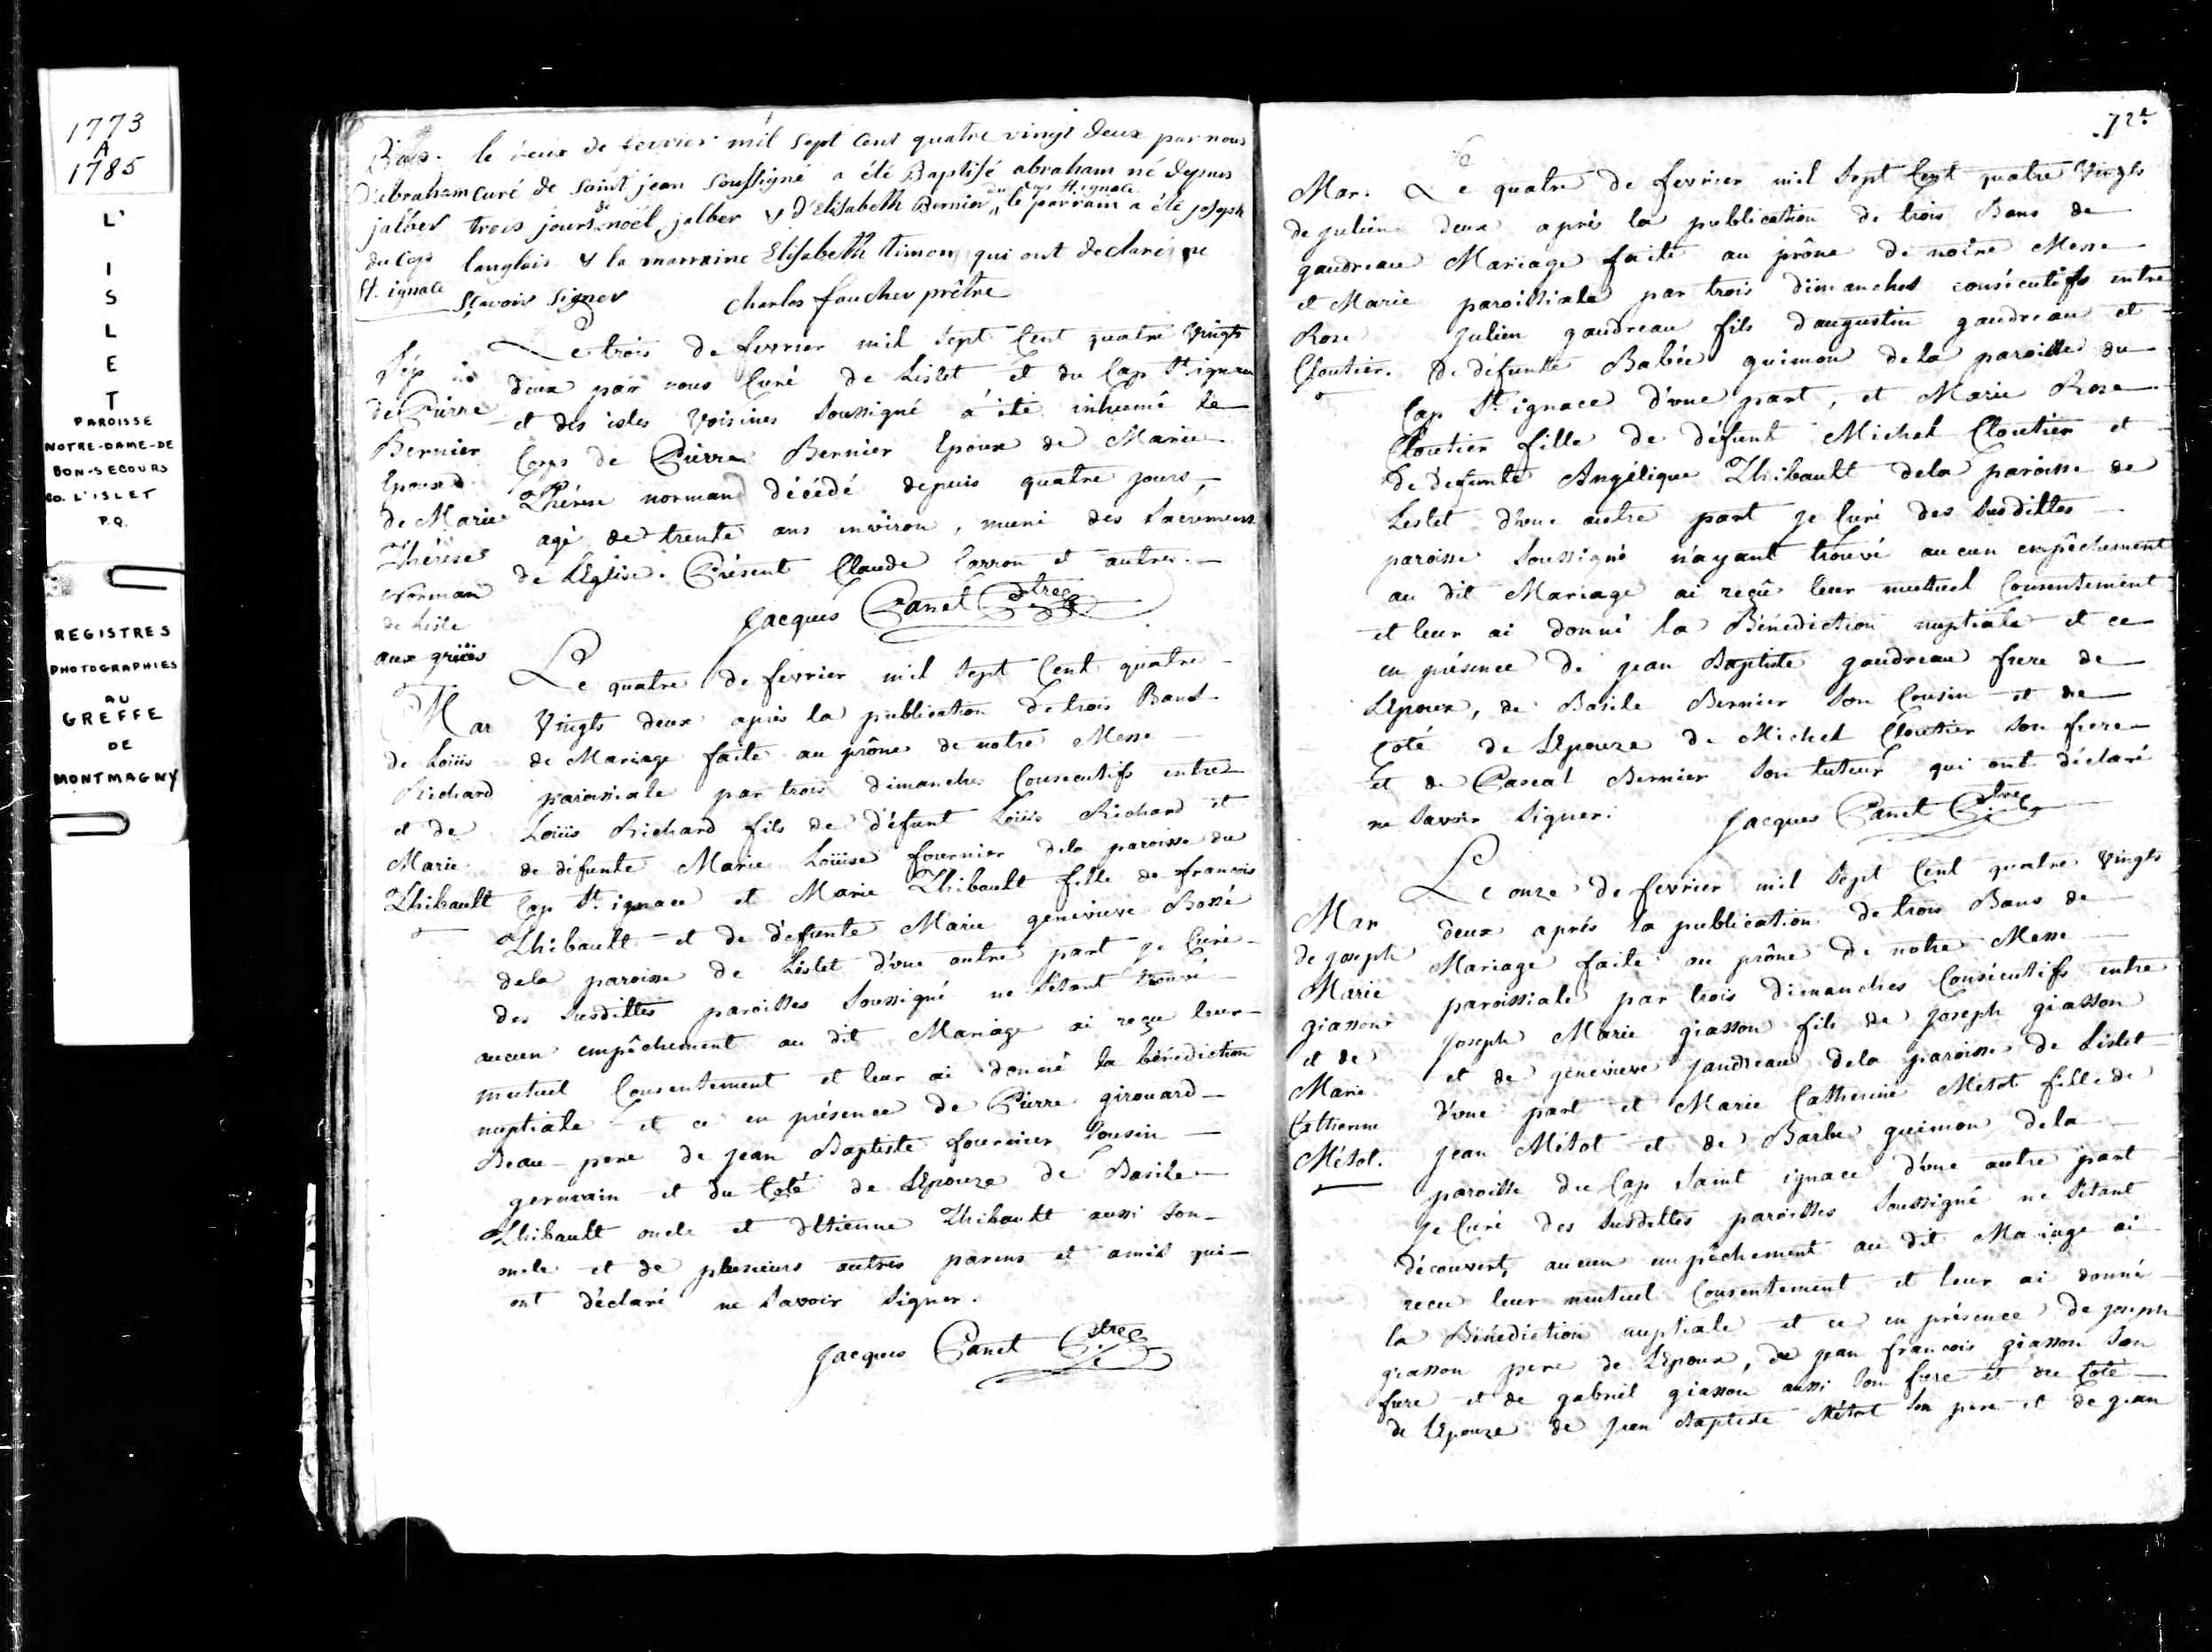 1773
A
1785
L'
I
S
L
E
T
PAROISSE
NOTRE-DAME-DE
BON-SECOURS
Co. L'ISLET
P.Q.
REGISTRES
PHOTOGRAPHIES
AU
GREFFE
DE
MONTMAGNY
Bap.
d'abraham
jalber
du Cap
St. ignace
le deux de fevrier mil sept cent quatre vingt deux par nous
curé de saint jean soussigné a été Baptisé abraham né depuis
trois jours de noël jalber & d'Elisabeth Bernier du Cap St. ignace le parrain a été joseph
langlois & la marraine Elisabeth Simon qui ont declaré ne
sçavoir signer charles faucher prêtre
Sép
de Pierre
Bernier
Epoux
de Marie
Thérese
Norman
de Lisle
aux grües
Le trois de fevrier mil sept Cent quatre Vingts
deux par nous Curé de Lislet, et du Cap St ignace
et des isles Voisines soussigné a été inhumé le
Corps de Pierre Bernier Epoux de Marie
Thérese norman décédé depuis quatre jours,
agé de trente ans environ, muni des sacremens
de L'Eglise. Présent Claude Carron et autres.
Jacques Panet Ptre
Mar
de Loüis
Richard
et de
Marie
Thibault
Le quatre de fevrier mil sept Cent quatre
Vingts deux après la publication de trois Bans
de Mariage faite au prône de notre Messe
paroissiale par trois dimanches Consecutifs entre
Loüis Richard fils de défunt Loüis Richard et
de défunte Marie Loüise fournier dela paroisse du
Cap St. ignace et Marie Thibault fille de francois
Thibault et de défunte Marie genevieve Bossé
dela paroisse de Lislet d'vne autre part je Curé
des susdittes paroisses soussigné ne s'étant trouvé
aucun empêchement au dit Mariage ai reçu leur
mutuel Consentement et leur ai donné la bénediction
nuptiale et ce en présence de Pierre girouard
Beau-pere de jean Baptiste fournier Cousin
germain et du Coté de L'Epouze de Basile
Thibault oncle et d'Etienne Thibault aussi son
oncle et de plusieurs autres parens et amis qui
ont déclaré ne savoir signer.
Jacques Panet Ptre
72e
Mar.
de julien
gaudreau
et Marie
Rose
Cloutier.
Le quatre de fevrier mil sept Cent quatre Vingts
deux après la publication de trois Bans de
Mariage faite au prône de notre Messe
paroissiale par trois dimanches consécutifs entre
julien gaudreau fils d'augustin gaudreau et
de défunte Babée guimon dela paroisse du
Cap St ignace d'vne part, et Marie Rose
Cloutier fille de défunt Michel Cloutier et
de défunte Angélique Thibault dela paroisse de
Leslet d'vne autre part je Curé des susdittes
paroisse soussigné n'ayant trouvé aucun empêchement
au dit Mariage ai reçu leur mutuel Consentement
et leur ai donné la Bénédiction nuptiale et ce
en présence de jean Baptiste gaudreau frere de
L'Epoux, de Basile Bernier son Cousin et de
Coté de L'Epouze de Michel Cloutier son frere
et de Pascal Bernier son tuteur qui ont déclaré
ne savoir signer. Jacques Panet Ptre
Mar
de joseph
Marie
giasson
et de
Marie
Catherine
Métot.
Le onze de fevrier mil sept Cent quatre Vingts
deux après la publication de trois Bans de
Mariage faite au prône de notre Messe
paroissiale par trois dimanches Consécutifs entre
joseph Marie giasson fils de joseph giasson
et de genevieve gaudreau dela paroisse de Lislet
d'vne part et Marie Catherine Métot fille de
jean Métot et de Barbe guimon dela
paroisse du Cap saint ignace d'vne autre part
je Curé des susdittes paroisses soussigné ne s'étant
découvert aucun empêchement au dit Mariage ai
recu leur mutuel Consentement et leur ai donné
la Bénédiction nuptiale et ce en présence de joseph
giasson pere de L'Epoux, de jean francois giasson son
frere et de gabriel giasson aussi son frere et du Coté
de L'Epouze de jean Baptiste Métot son pere et de jean